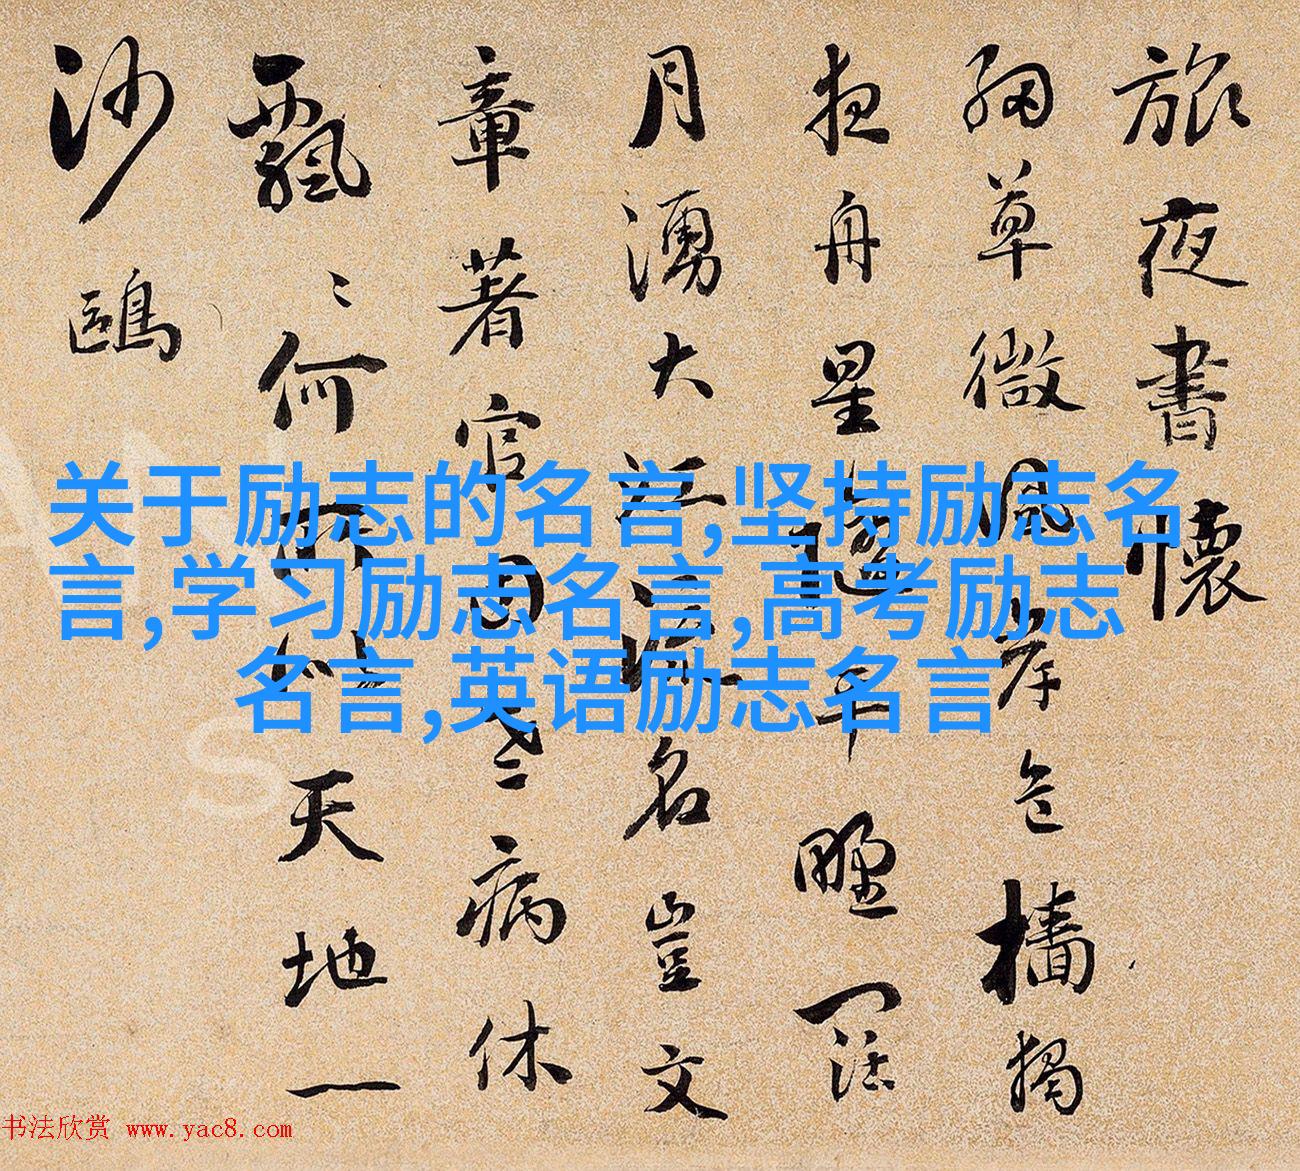 旅夜書懷
細草微風岸危檣獨
夜舟星平野闊
月湧大江流名豈文
章著官因老病休
飄〻何所似天地一
沙鷗
关于励志的名言,坚持励志名
言,学习励志名言,高考励志
名言,英语励志名言
书法欣赏 www.yac8.com